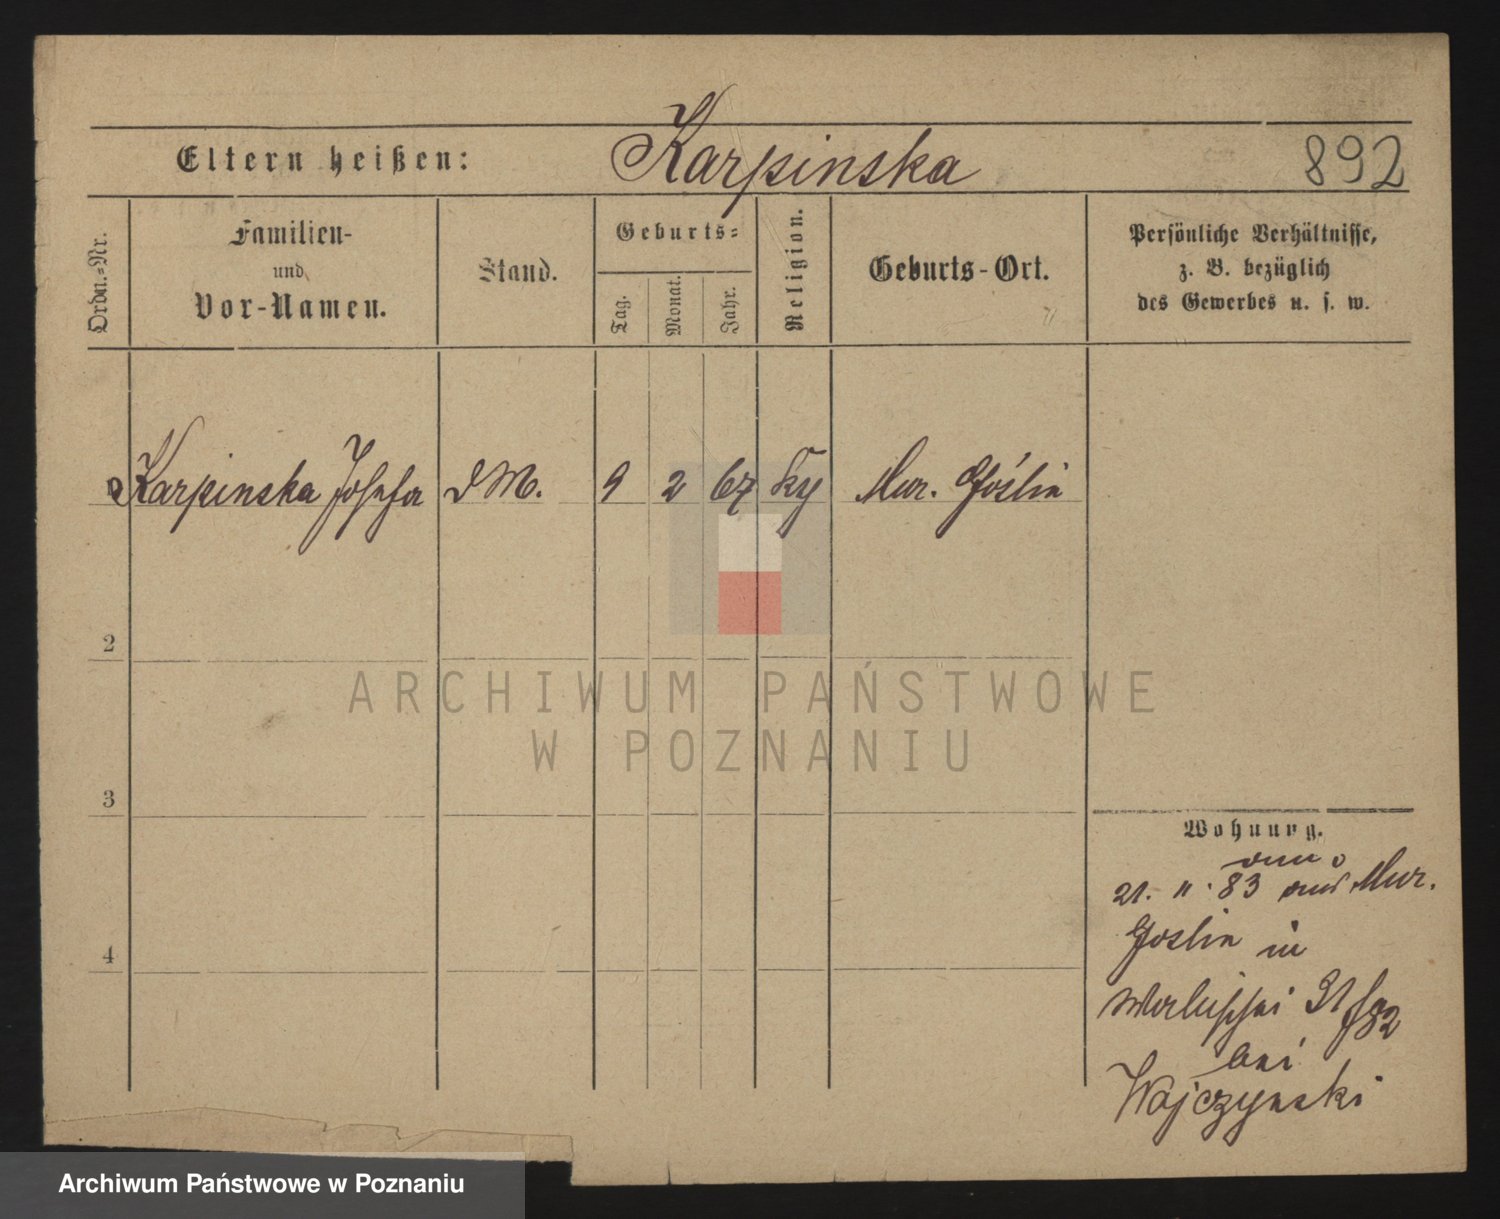 Eltern heißen: Karpinska 892
Ordn.=Nr.
Familien-
und
Vor-Namen.
Stand.
Geburts=
Tag.
Monat.
Jahr.
Religion.
Geburts-Ort.
Persönliche Verhältnisse,
z. B. bezüglich
des Gewerbes u. s. w.
Karpinska Josefa DM. 9 2 67 Ky Mur. Goślin
2
3
4
Wohnung.
21. 11. 83 aus Mur.
Goslin in
31/82
bei
Wojczynski
ARCHIWUM PAŃSTWOWE
W POZNANIU
Archiwum Państwowe w Poznaniu